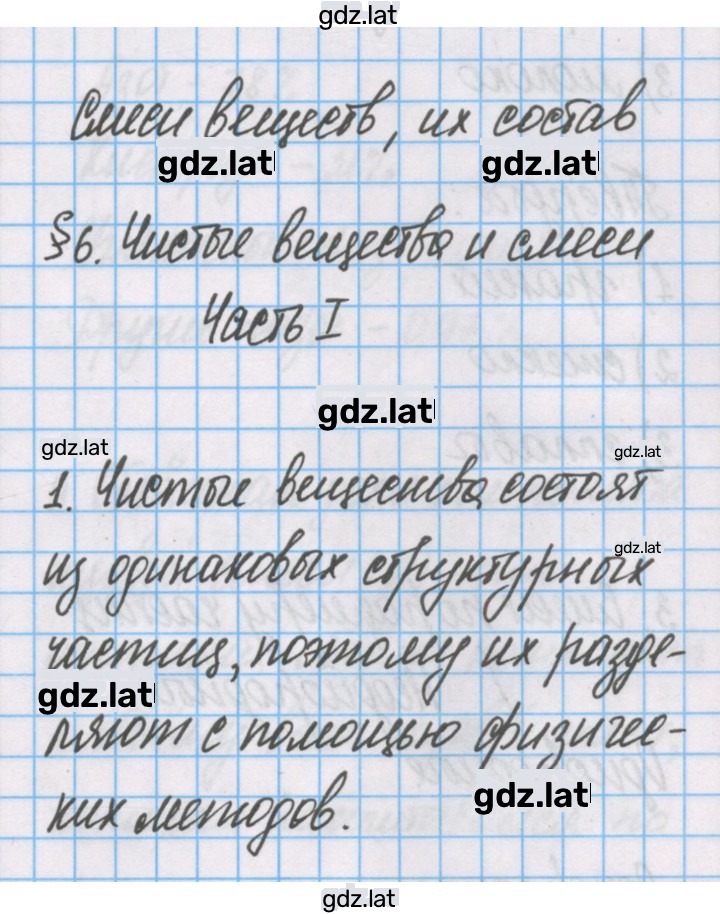 gdz.lat
Смеси веществ, их состав
gdz.lat gdz.lat
§6. Чистые вещества и смеси
Часть I
gdz.lat
gdz.lat gdz.lat
1. Чистые вещества состоят
gdz.lat
из одинаковых структурных
частиц, поэтому их разде-
gdz.lat
ляют с помощью физичес-
gdz.lat
ких методов.
gdz.lat